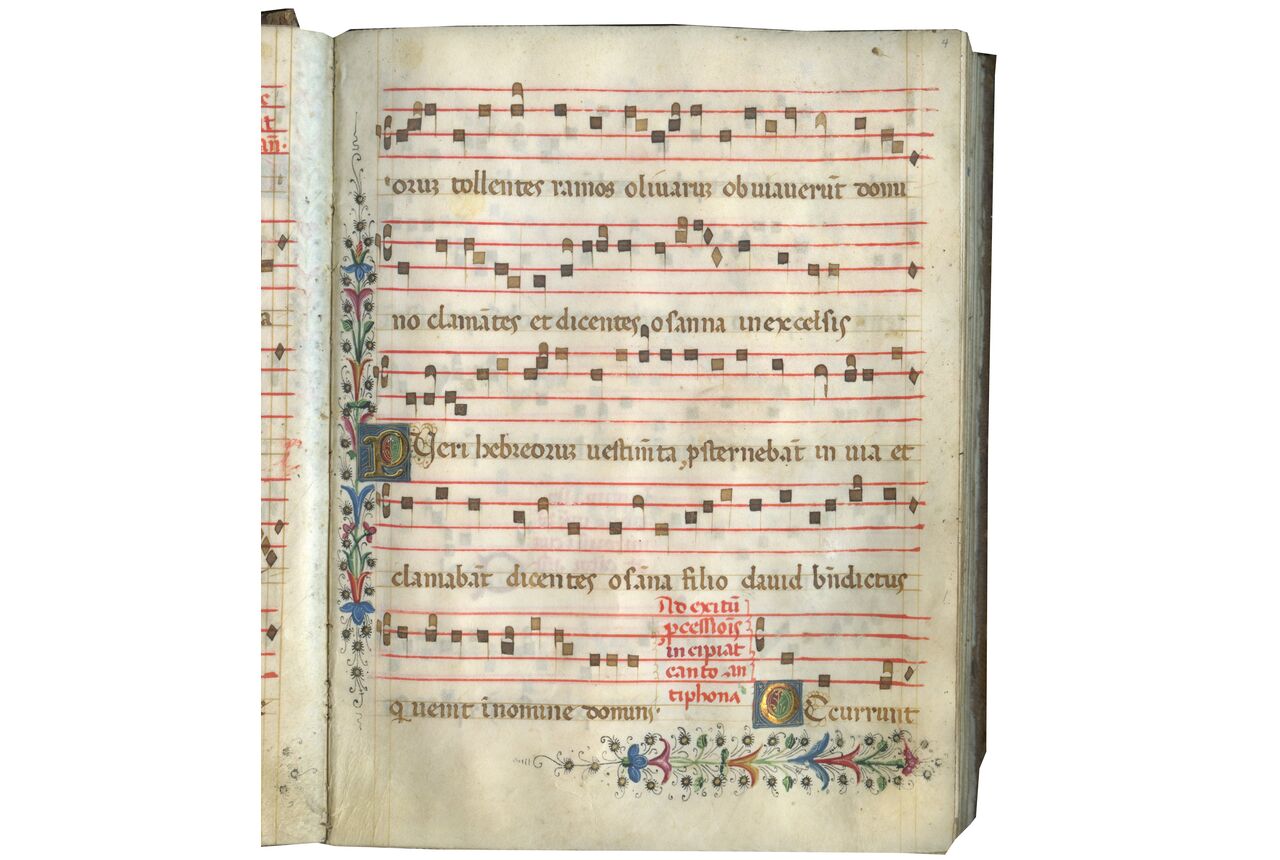 4
oruz tollentes ramos oliuaruz obuiauerūt domi
no clamātes et dicentes osanna in excelsis
Pueri hebreoruz uestimēta psternebāt in uia et
clamabāt dicentes osāna filio dauid bn̄dictus
qui uenit ī nomine domini.
Ad exitū
pcessiōis
incipiat
cantor an
tiphona
Occurrunt